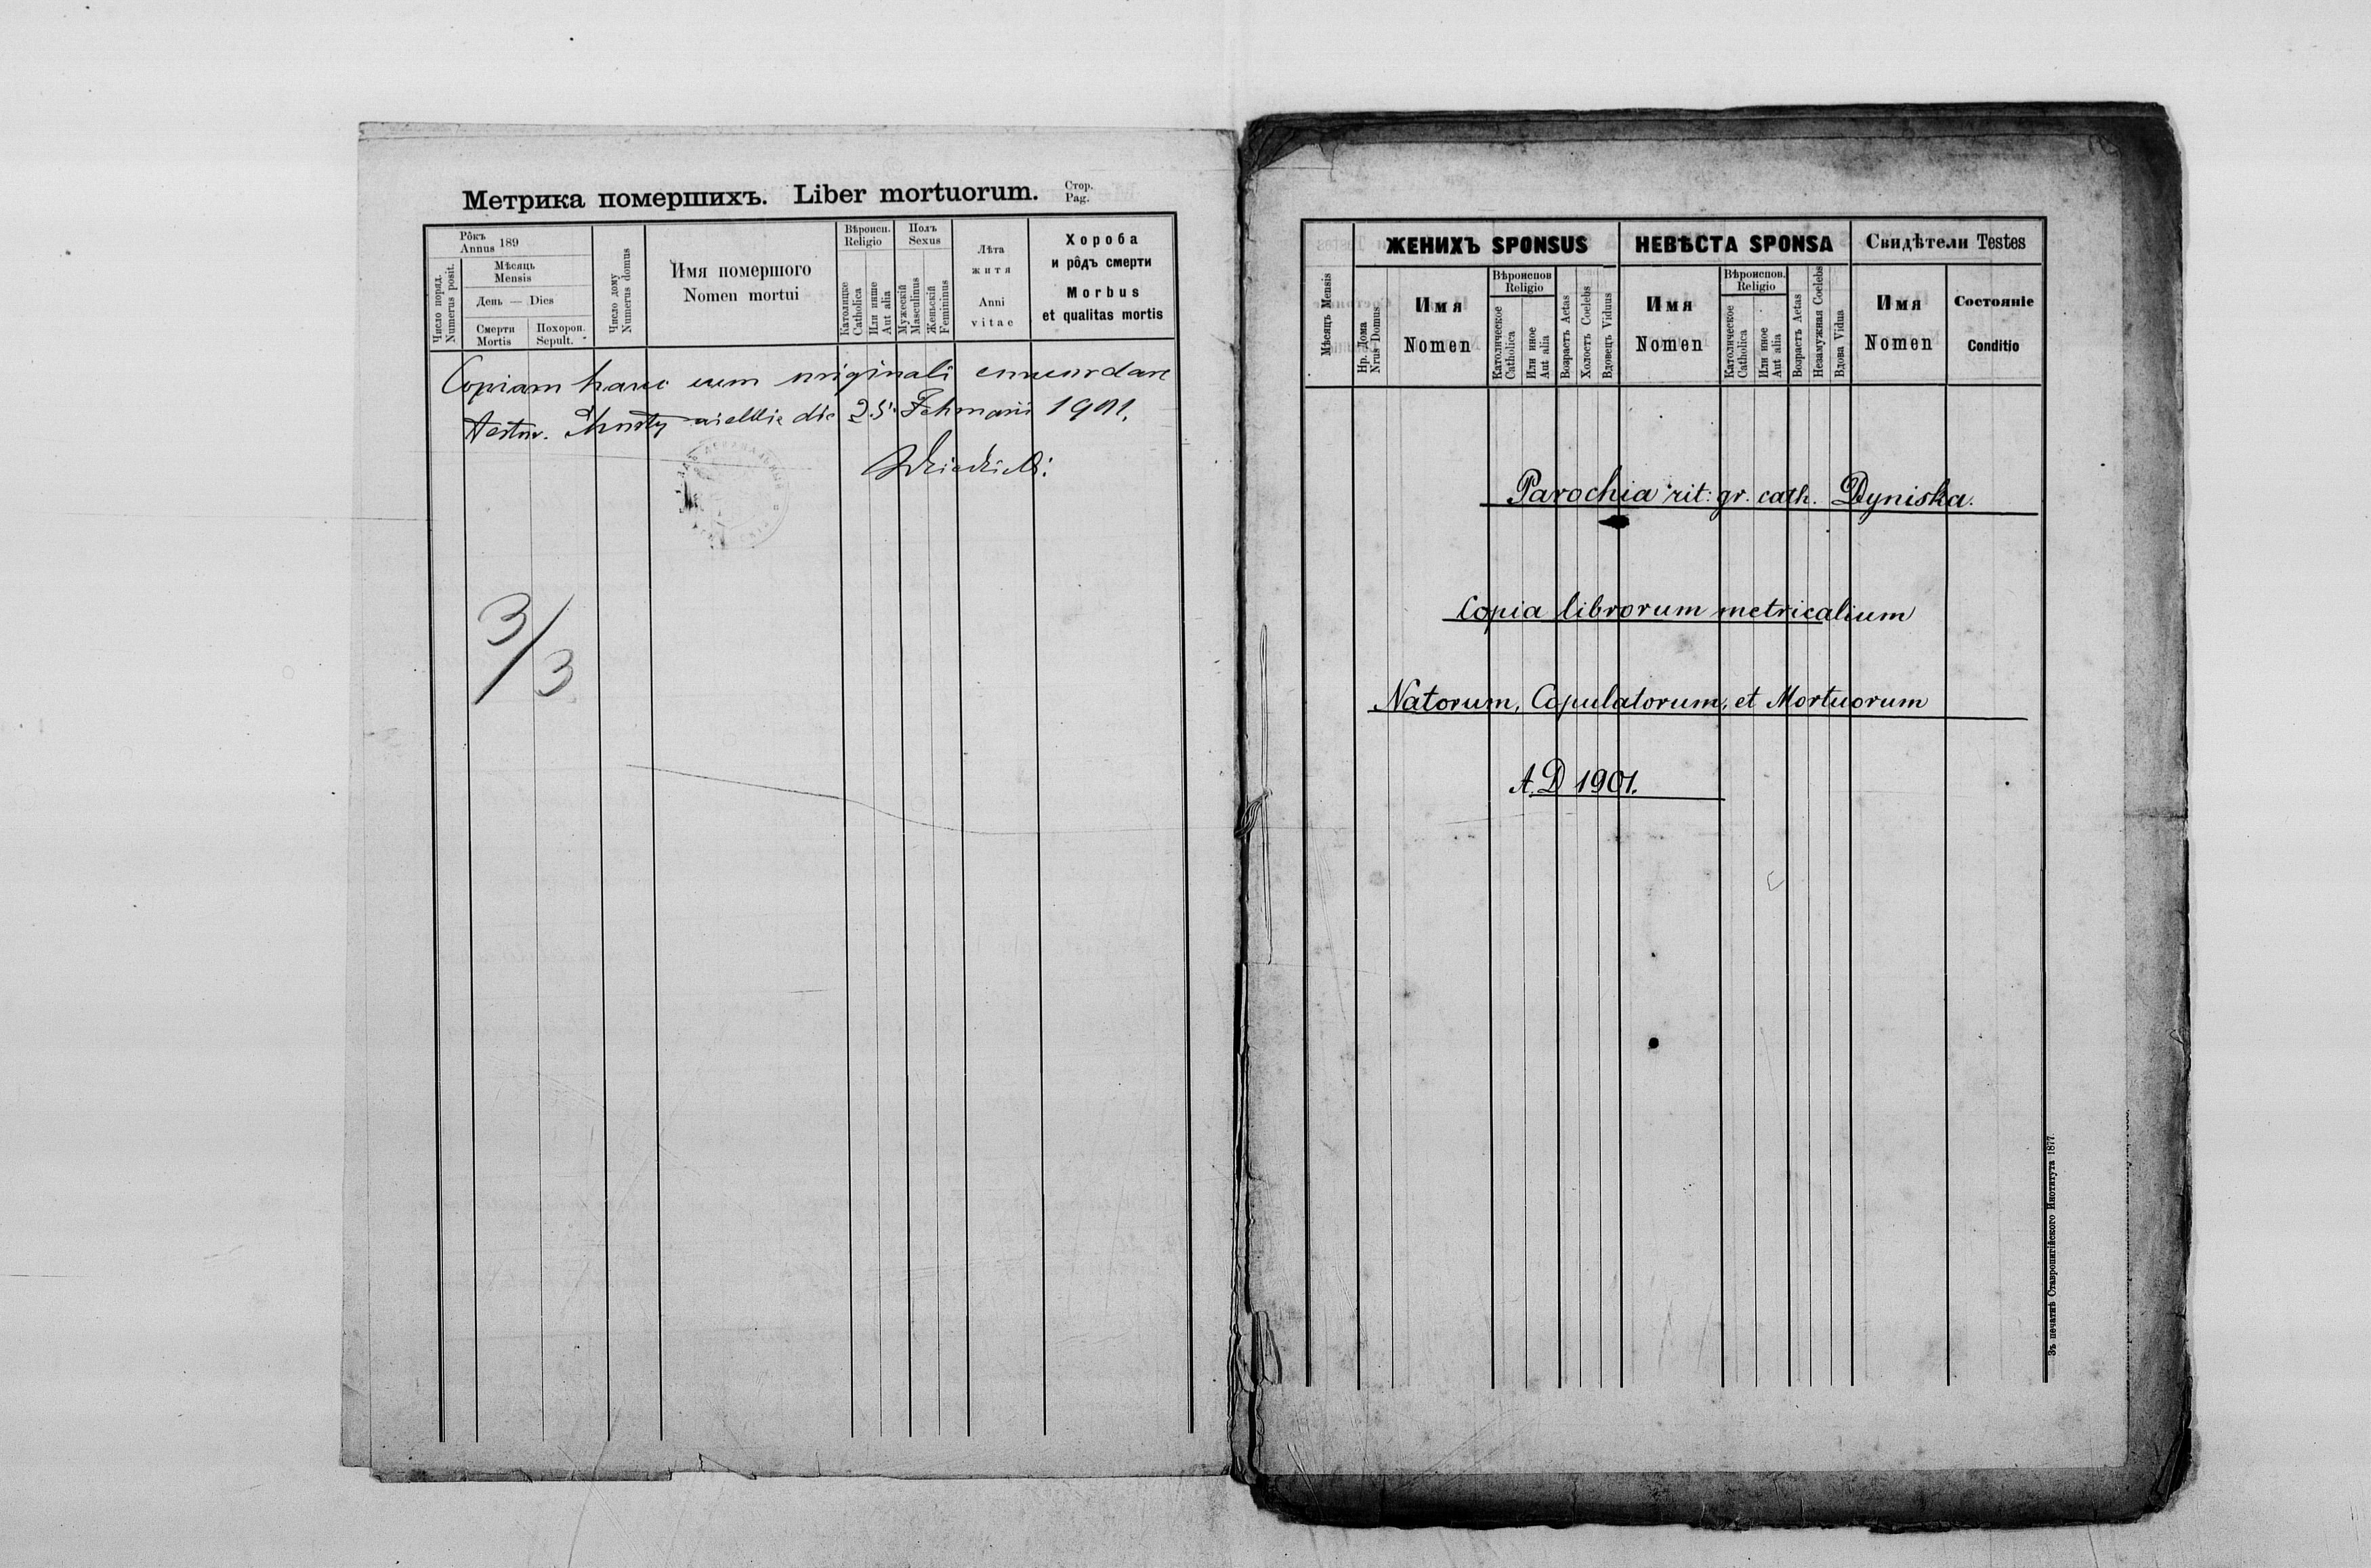 Метрика помершихъ. Liber mortuorum. Стор. Pag.
Рôкъ Annus 189
Мѣсяць Mensis
День — Dies
Число поряд. Numerus posit.
Смерти Mortis
Похорон. Sepult.
Число дому Numerus domus
Имя помершого Nomen mortui
Вѣроисп. Religio
Католицке Catholica
Или инше Aut alia
Полъ Sexus
Мужескій Masculinus
Женьскій Femininus
Лѣта житя Anni vitae
Хороба и рôдъ смерти Morbus et qualitas mortis
Copiam hanc cum originali concordare
testor. die 25. Februarii 1901.
3/3
ЖЕНИХЪ SPONSUS
НЕВѢСТА SPONSA
Свидѣтели Testes
Мѣсяцъ Mensis
Нр. Дома Nrus Domus
Имя Nomen
Вѣроиспов Religio
Католическое Catholica
Или иное Aut alia
Возрастъ Aetas
Холостъ Coelebs
Вдовецъ Viduus
Имя Nomen
Вѣроиспов. Religio
Католическое Catholica
Или иное Aut alia
Возрастъ Aetas
Незамужная Coelebs
Вдова Vidua
Имя Nomen
Состоянiе Conditio
Parochia rit: gr. cath. Dyniska.
Copia librorum metricalium
Natorum, Copulatorum, et Mortuorum
A.D 1901.
Зъ печатнѣ Ставропигійского Института 1877.